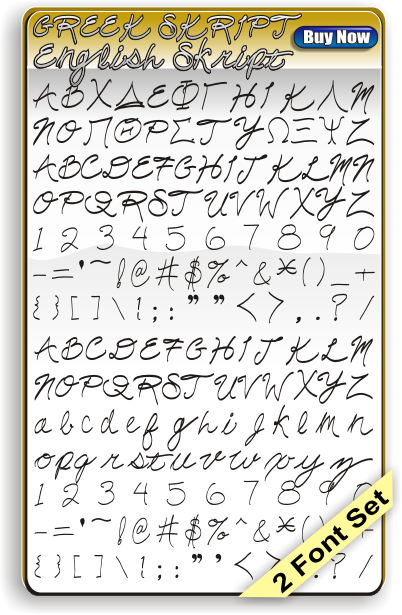 GREEK SKRIPT
English Skript
Buy Now
Α Β Χ Δ Ε Φ Γ Η Ι Κ Λ Μ
Ν Ο Π Θ Ρ Σ Τ Υ Ω Ξ Ψ Ζ
A B C D E F G H I J K L M N
O P Q R S T U V W X Y Z
1 2 3 4 5 6 7 8 9 0
- = ' ~ ! @ # $ % ^ & * ( ) _ +
{ } [ ] \ ! ; : " " < > , . ? /
A B C D E F G H I J K L M
N O P Q R S T U V W X Y Z
a b c d e f g h i j k l m n
o p q r s t u v w x y z
1 2 3 4 5 6 7 8 9 0
- = ' ~ ! @ # $ % ^ & * ( ) _ +
{ } [ ] \ ! ; : " " < > . ? /
2 Font Set